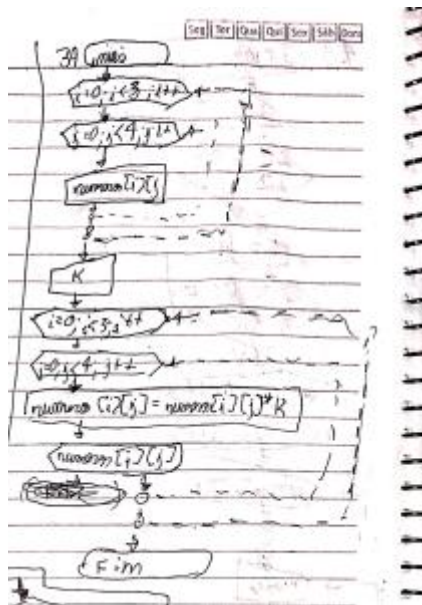 Seg Ter Qua Qui Sex Sáb Dom
39 início
i=0; i<3; i++
j=0; j<4; j++
numeros [i][j]
K
i=0; i<3; i++
j=0; j<4; j++
numeros [i][j] = numeros [i][j] * K
numeros [i][j]
Fim